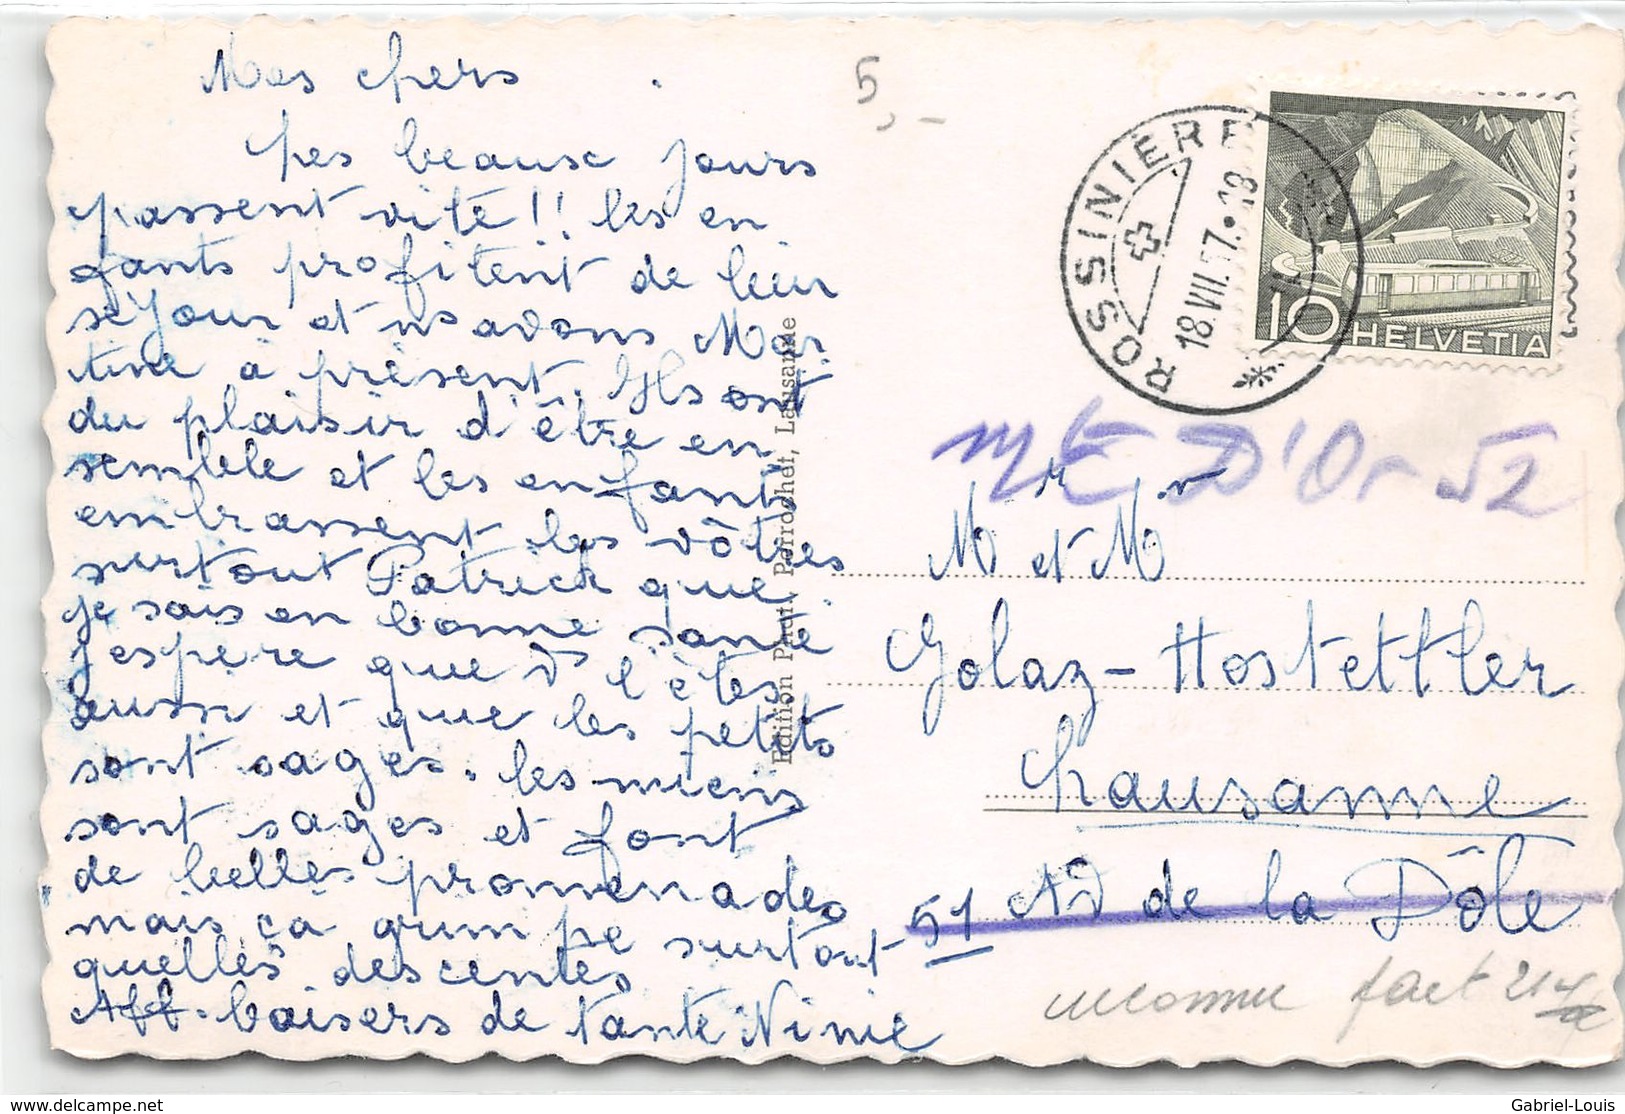 Mes chers
Les beaux jours
passent vite!! les en
fants profitent de leur
séjour et ns avons Mar
tine à présent. Ils ont
du plaisir d'être en
semble et les enfants
embrassent les vôtres
surtout Patrick que
je sais en bonne santé
j'espère que vs l'êtes
aussi et que les petits
sont sages. les miens
sont sages et font
de belles promenades
mais ça grimpe surtout
quelles descentes
Aff. baisers de tante Ninie
5,-
Edition Phot. Perrochet, Lausanne
ROSSINIÈRE
18.VII.57.
10 HELVETIA
Mt D'Or 52
M et M
Golaz-Hostettler
Lausanne
51 Av de la Dôle
inconnu fact 21
www.delcampe.net
Gabriel-Louis